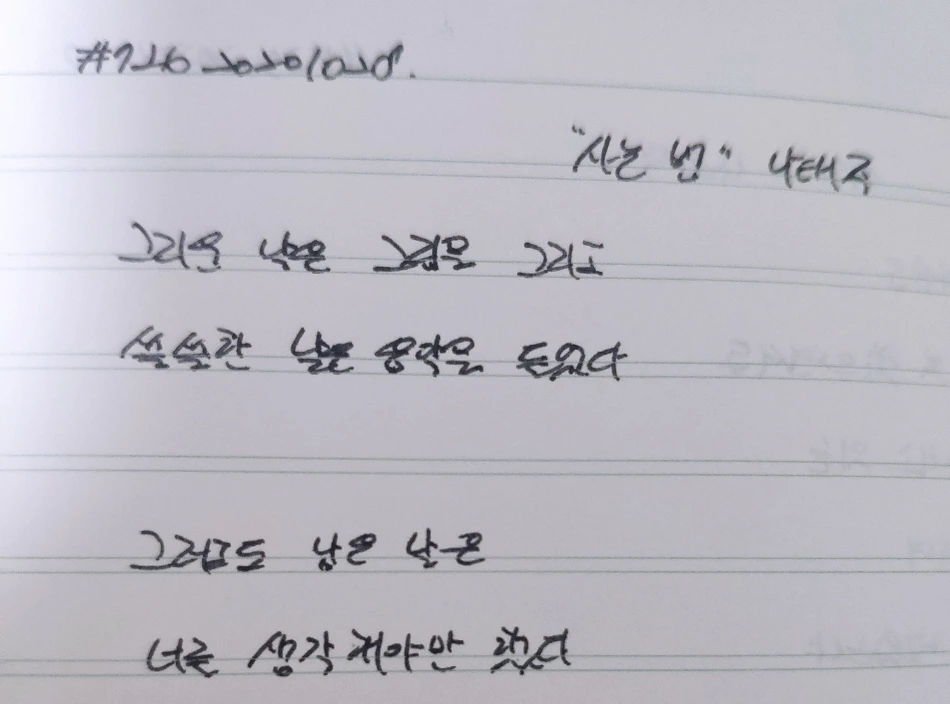 #726 20201028.
"사는 법" 나태주
그리운 날은 그림을 그리고
쓸쓸한 날은 음악을 들었다
그리고도 남은 날은
너를 생각해야만 했다